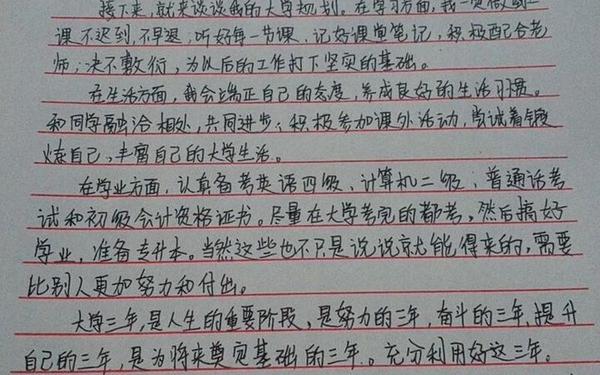 接下来,就来谈谈我的大学规划。在学习方面,我一定做到上
课不迟到,不早退;听好每一节课、记好课堂笔记,积极配合老
师;决不敷衍,为以后的工作打下坚实的基础。
在生活方面,我会端正自己的态度,养成良好的生活习惯。
和同学融洽相处,共同进步;积极参加课外活动,尝试着锻
炼自己,丰富自己的大学生活。
在学业方面,认真备考英语四级、计算机二级;普通话考
试和初级会计资格证书。尽量在大学考完的都考,然后搞好
学业,准备专升本。当然这些也不只是说说就能得来的,需要
比别人更加努力和付出。
大学三年,是人生的重要阶段,是努力的三年,奋斗的三年,提升
自己的三年,是为将来奠定基础的三年。充分利用好这三年。